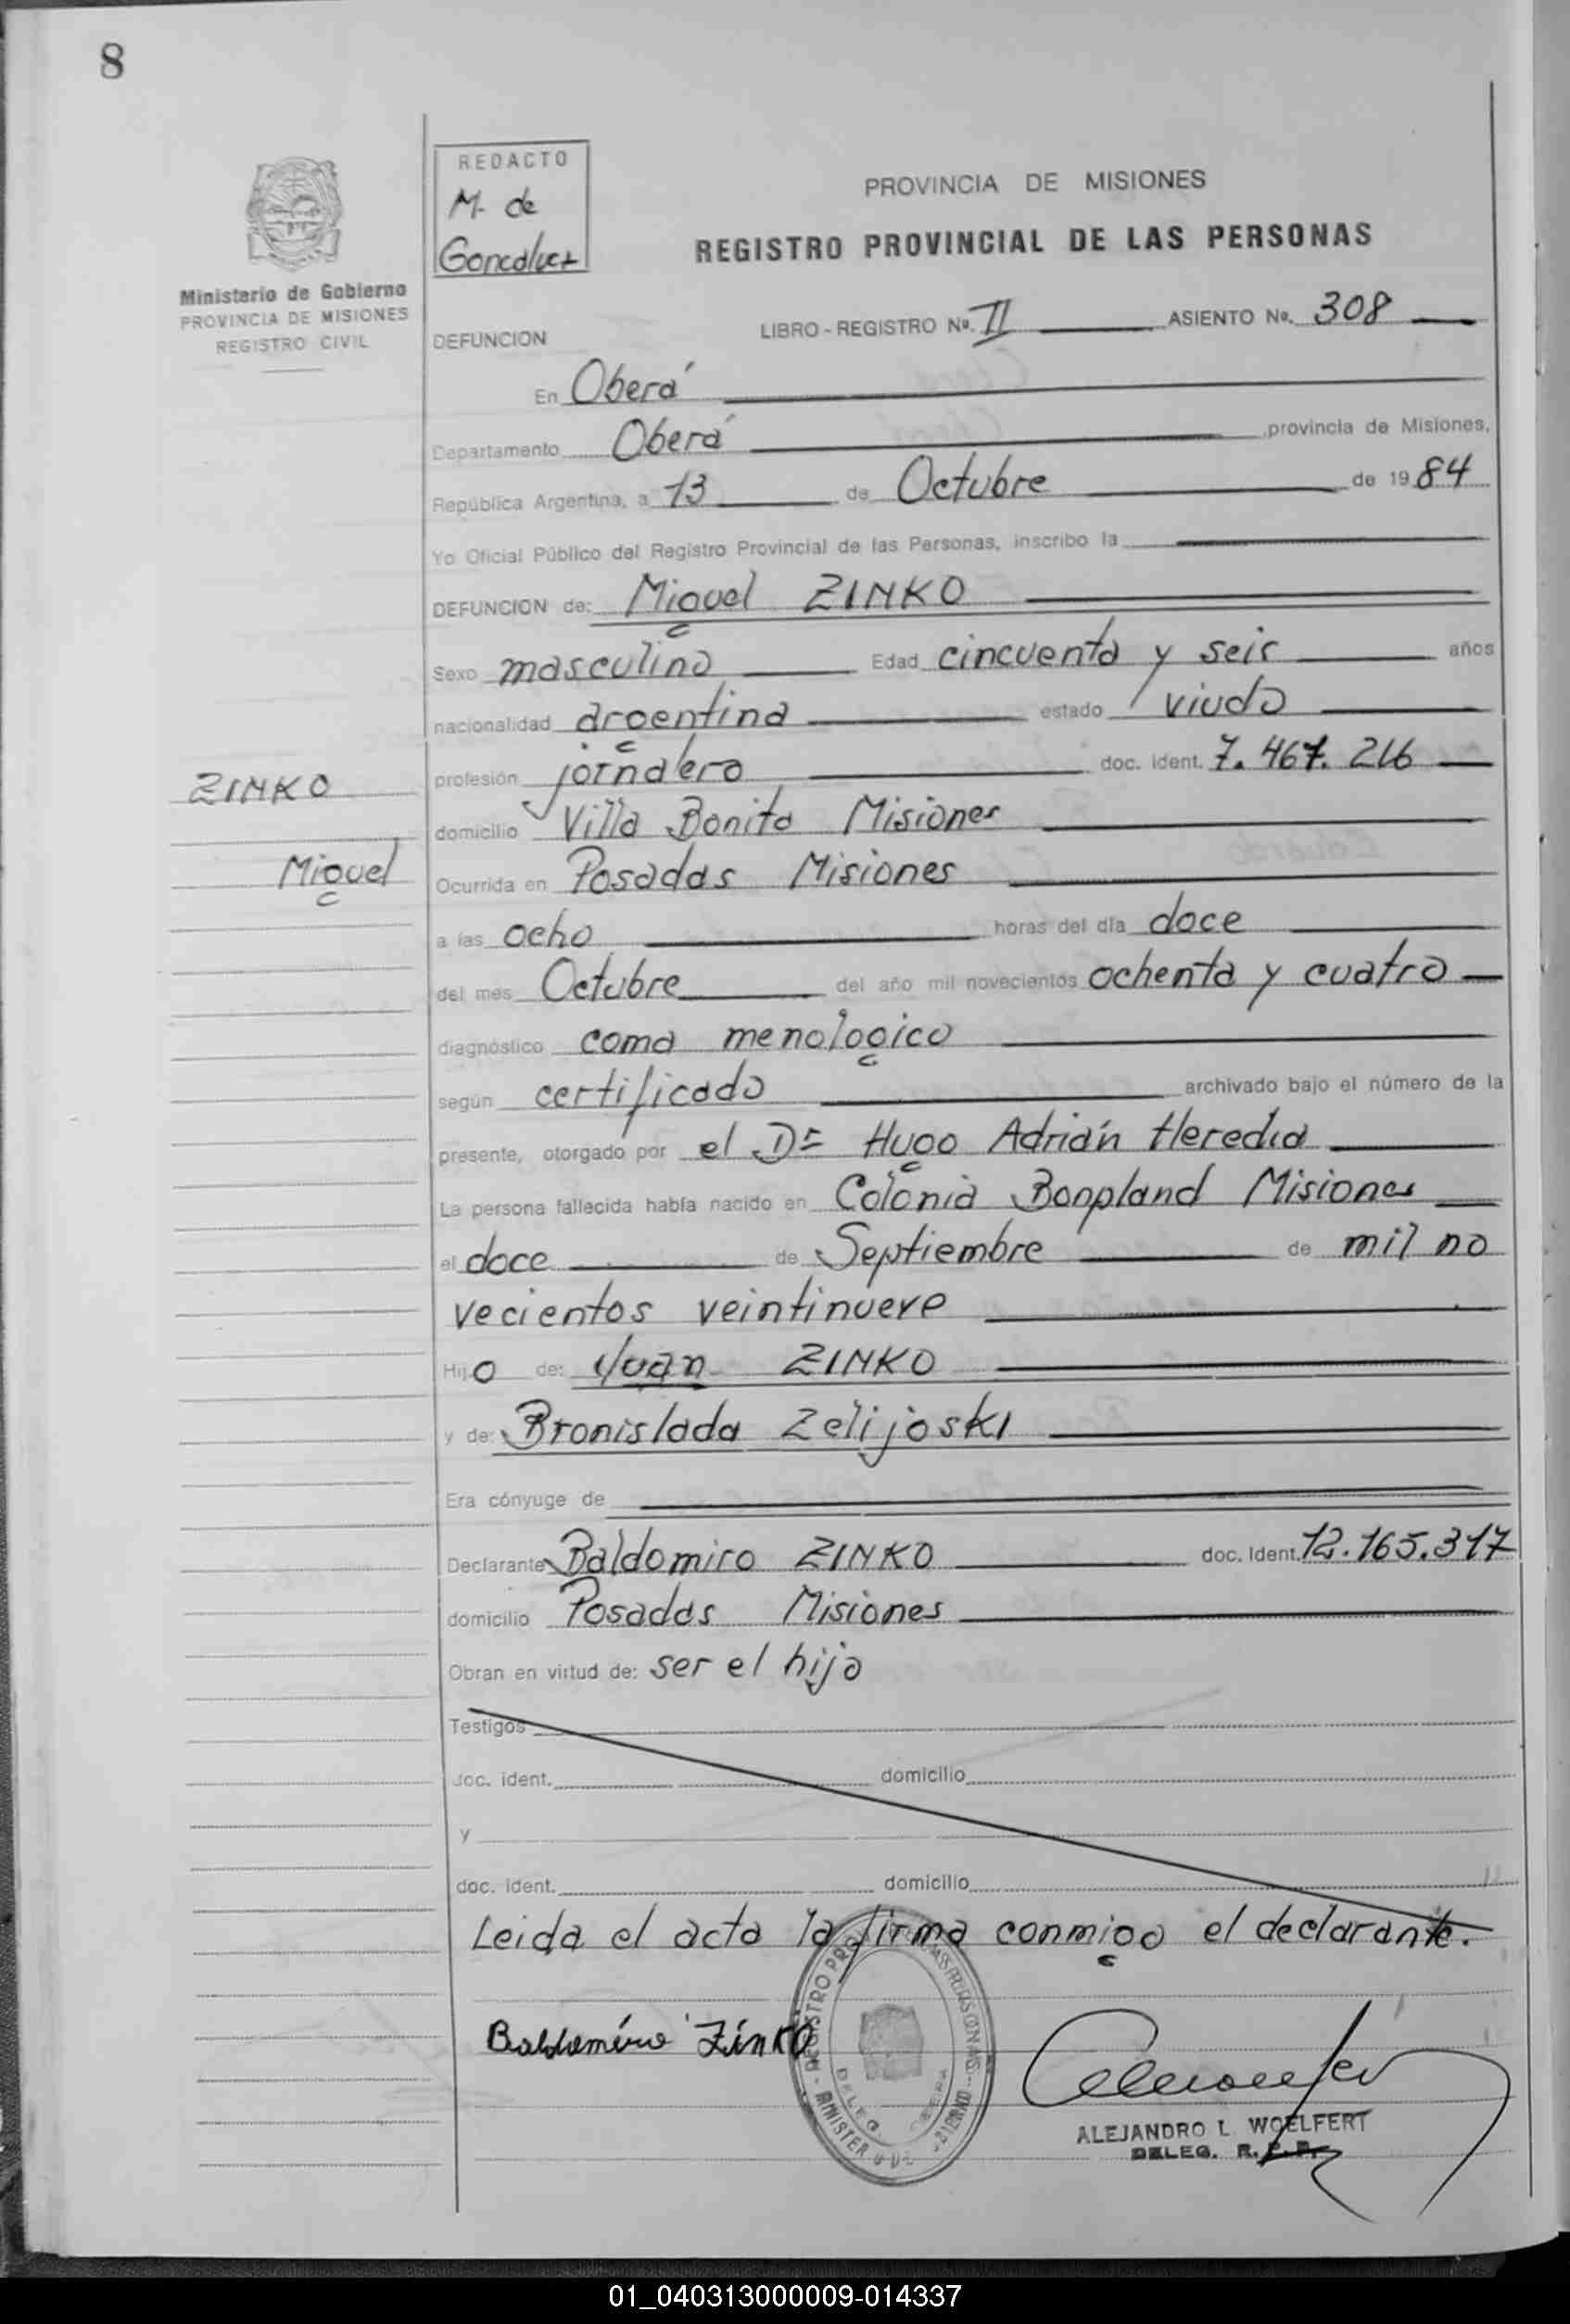 8
REDACTO
M. de
Goncalvez
PROVINCIA DE MISIONES
REGISTRO PROVINCIAL DE LAS PERSONAS
Ministerio de Gobierno
PROVINCIA DE MISIONES
REGISTRO CIVIL
DEFUNCION LIBRO - REGISTRO Nº. II ASIENTO Nº. 308
En Oberá
Departamento Oberá provincia de Misiones,
República Argentina, a 13 de Octubre de 1984
Yo Oficial Público del Registro Provincial de las Personas, inscribo la
DEFUNCION de: Miguel ZINKO
Sexo masculino Edad cincuenta y seis años
nacionalidad argentina estado viudo
profesión jornalero doc. ident. 7.467.216
ZINKO
domicilio Villa Bonita Misiones
Miguel
Ocurrida en Posadas Misiones
a las ocho horas del día doce
del mes Octubre del año mil novecientos ochenta y cuatro
diagnóstico coma menologico
según certificado archivado bajo el número de la
presente, otorgado por el Dr Hugo Adrián Heredia
La persona fallecida había nacido en Colonia Bonpland Misiones
el doce de Septiembre de mil no
vecientos veintinueve
Hijo de: Juan ZINKO
y de: Bronislada Zelijoski
Era cónyuge de
Declarante Baldomiro ZINKO doc. Ident. 12.165.317
domicilio Posadas Misiones
Obran en virtud de: ser el hijo
Testigos
doc. ident. domicilio
y
doc. ident. domicilio
Leida el acta la firma conmigo el declarante.
Baldomiro Zinko
ALEJANDRO L. WOELFERT
DELEG. R.P.P.
01_040313000009-014337